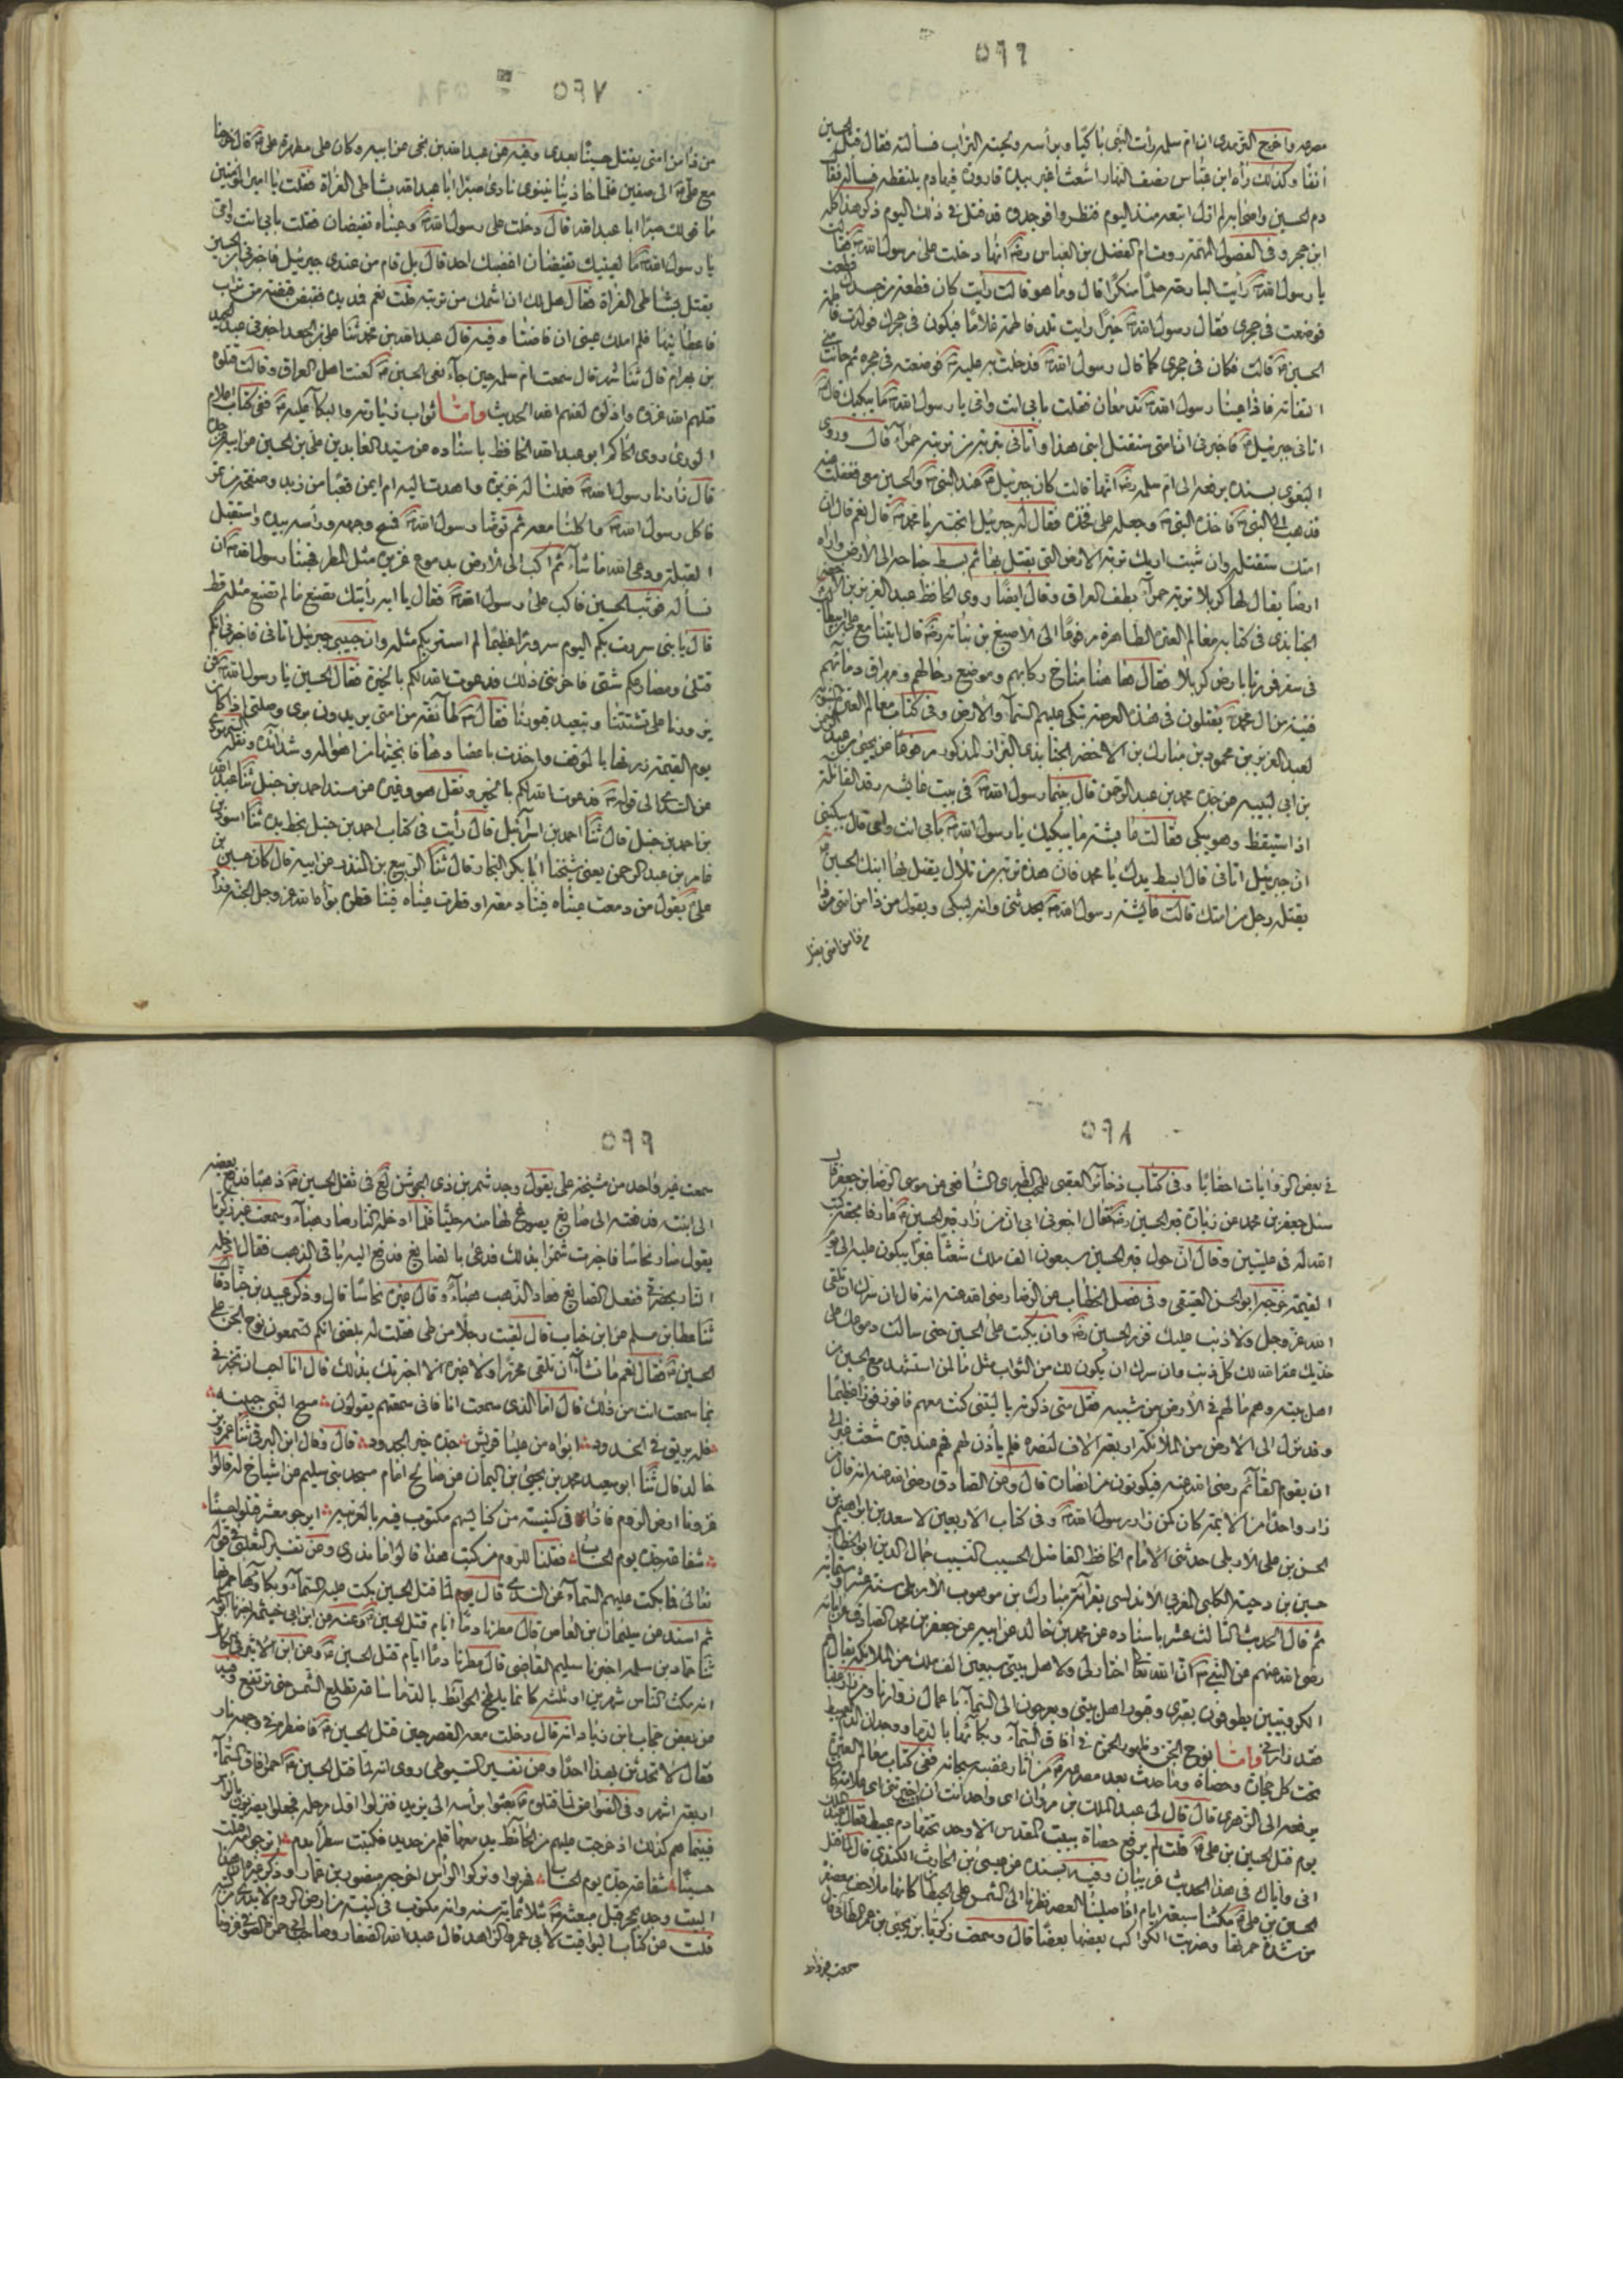 ٥٩٦
مصرعه واخرج الترمذى ان ام سلمه رأت النبى باكيا وبرأسه ولحيته التراب فسألته فقال قتل الحسين
آنفا وكذلك رآه ابن عباس نصف النهار اشعث اغبر بيده قارورة فيها دم يلتقطه فسأله فقال
دم الحسين واصحابه لم ازل اتبعه منذ اليوم فنظروا فوجدوه قد قتل فى ذلك اليوم ذكر هذا كله
ابن حجر وفى الفصول المهمة روت ام الفضل بن العباس انها دخلت على رسول الله فقالت
يا رسول الله رأيت البارحة حلما منكرا قال وما هو قالت رأيت كان قطعة من جسدك قطعت
فوضعت فى حجرى فقال رسول الله خيرا رأيت تلد فاطمة غلاما فيكون فى حجرك فولدت فاطمة
الحسين قالت فكان فى حجرى كما قال رسول الله فدخلت به عليه فوضعته فى حجره ثم حانت منى
التفاتة فاذا عينا رسول الله تدمعان فقلت بابى انت وامى يا رسول الله ما يبكيك قال
اتانى جبرئيل فاخبرنى ان امتى ستقتل ابنى هذا واتانى بتربة من تربته حمراء قال وروى
البغوى بسنده يرفعه الى ام سلمه انها قالت كان جبرئيل عند النبى والحسين معى فغفلت عنه
فذهب الى النبى فاخذه النبى وجعله على فخذه فقال له جبرئيل اتحبه يا محمد قال نعم قال ان
امتك ستقتله وان شئت اريتك تربة الارض التى يقتل بها ثم بسط جناحه الى الارض واراه
ارضا يقال لها كربلا تربة حمراء بطف العراق وقال ايضا روى الحافظ عبد العزيز بن الاخضر
الجنابذى فى كتابه معالم العترة الطاهرة مرفوعا الى الاصبغ بن نباته قال اتينا مع على
فى سفر فمررنا بارض كربلا فقال هاهنا مناخ ركابهم وموضع رحالهم ومهراق دمائهم
فتية من آل محمد يقتلون فى هذه العرصة تبكى عليهم السماء والارض وفى كتاب معالم العترة
لعبد العزيز بن محمود بن مبارك بن الاخضر الجنابذى البزاز المذكور مرفوعا عن يحيى بن عبد الرحمن
بن ابى لبيبه عن جده محمد بن عبد الرحمن قال بينما رسول الله فى بيت عايشه رقد القائلة
اذا استيقظ وهو يبكى فقالت عايشه ما يبكيك يا رسول الله بابى انت وامى قال يبكينى
ان جبرئيل اتانى قال ابسط يدك يا محمد فان هذه تربة من تلال يقتل بها ابنك الحسين
يقتله رجل من امتك قالت عايشه رسول الله يحدثنى وانه ليبكى ويقول من ذا من امتى من ذا
من ذا من امتى يقتل
٥٩٧
من ذا من امتى يقتل حسينا بعدى وفيه عن عبد الله بن نجى عن ابيه وكان على مطهرة على قال خرجنا
مع على الى صفين فلما حاذينا نينوى نادى صبرا ابا عبد الله بشاطى الفراة فقلت يا امير المؤمنين
ما قولك صبرا ابا عبد الله قال دخلت على رسول الله وعيناه تفيضان فقلت بابى انت وامى
يا رسول الله ما لعينيك تفيضان اغضبك احد قال بل قام من عندى جبرئيل فاخبرنى ان الحسين
يقتل بشاطى الفراة فقال هل لك ان اشمك من تربته قلت نعم فمد يده فقبض قبضة من تراب
فاعطانيها فلم املك عينى ان فاضتا وفيه قال عبد الله بن محمد ثنا على بن الجعد اخبرنى عبد الحميد
بن بهرام قال ثنا شهر قال سمعت ام سلمه حين جاء نعى الحسين لعنت اهل العراق وقالت قتلوه
قتلهم الله غروه واذلوه لعنهم الله الحديث واما ثواب زيارته والبكاء عليه ففى كتاب اعلام
الورى روى الحاكم ابو عبد الله الحافظ باسناده عن سيد العابدين على بن الحسين عن ابيه عن جده
قال زارنا رسول الله فعملنا له خزيرة واهدت اليه ام ايمن قعبا من زبد وصحفة من تمر
فاكل رسول الله واكلنا معه ثم توضأ رسول الله فمسح وجهه ورأسه بيده واستقبل
القبلة ودعى الله ما شاء ثم اكب الى الارض بدموع غزيرة مثل المطر فهبنا رسول الله ان
نسأله فوثب الحسين فاكب على رسول الله فقال يا ابه رأيتك تصنع ما لم تصنع مثله قط
قال يا بنى سررت بكم اليوم سرورا عظيما لم اسر بكم مثله وان حبيبى جبرئيل اتانى فاخبرنى انكم
قتلى ومصارعكم شتى فاحزننى ذلك فدعوت الله لكم بالخيرة فقال الحسين يا رسول الله فمن
يزورنا على تشتتنا وتبعد قبورنا فقال طائفة من امتى يريدون برى وصلتى اذا كان
يوم القيمة زرتها بالموقف واخذت باعضادها فانجيتها من اهواله وشدائده ونقله
عن الى قوله فدعوت الله لكم بالخير ونقل هو وغيره عن مسند احمد بن حنبل ثنا عبد الله
بن احمد بن حنبل قال ثنا احمد بن اسرائيل قال رأيت فى كتاب احمد بن حنبل بخط يده ثنا اسود بن
عامر بن عبد الرحمن يعنى شيخنا ابا بكر النجار قال ثنا الربيع بن المنذر عن ابيه قال كان حسين بن
على يقول من دمعت عيناه فينا دمعة او قطرت عيناه فينا قطرة بوأه الله عز وجل الجنة
٥٩٨
فى بعض الروايات احقابا وفى كتاب ذخائر العقبى للمحب الطبرى الشافعى عن موسى الرضا بن جعفر قال
سئل جعفر بن محمد عن زيارة قبر الحسين فقال اخبرنى ابى ان من زار قبر الحسين عارفا بحقه كتب
الله له فى عليين وقال ان حول قبر الحسين سبعون الف ملك شعثا غبرا يبكون عليه الى يوم
القيمة خرجه ابو الحسن العتيقى وفى فصل الخطاب عن الرضا رضى الله عنه انه قال ان سرك ان تلقى
الله عز وجل ولا ذنب عليك فزر الحسين وان بكيت على الحسين حتى سالت دموعك على
خديك غفر الله لك كل ذنب وان سرك ان يكون لك من الثواب مثل ما لمن استشهد مع الحسين من
اهل بيته وهم ما لهم فى الارض من شبيه فقل متى ذكرته يا ليتنى كنت معهم فافوز فوزا عظيما
وقد نزل الى الارض من الملائكة اربعة آلاف لنصره فلم يأذن لهم فهم عند قبره شعث غبر الى
ان يقوم القائم رضى الله عنه فيكونون من انصاره قال وعن الصادق رضى الله عنه انه قال من
زار واحدا من الايمة كان كمن زار رسول الله وفى كتاب الاربعين لاسعد بن ابراهيم بن
الحسن بن على الاربلى حدثنى الامام الحافظ الفاضل الحسيب النسيب جمال الدين ابو الخطاب
حسين بن دحية الكلبى المغربى الاندلسى بقرائة مبارك بن موهوب الاربلى سنة عشر وستماية
ثم قال الحديث الثالث عشر باسناده عن محمد بن خالد عن ابيه عن جعفر بن محمد الصادق عن ابائه
رضى الله عنهم عن النبى ان الله تعالى اختار لى ولاهل بيتى سبعين الف ملك من الملائكة يقال لهم
الكروبيين يطوفون بقبرى وقبور اهل بيتى ويعرجون الى السماء باعمال زوارنا
واما نوح الجن وظهور الحمرة فى آفاق السماء وبكائها بالدماء ووجدان الدم العبيط
تحت كل حجارة وحصاة وما حدث بعد مصرعه من آثار غضبه سبحانه ففى كتاب معالم العترة
يرفعه الى الزهرى قال قال لى عبد الملك بن مروان اى واحد انت ان اخبرتنى اى علامة كان
يوم قتل الحسين بن على قلت لم يرفع حصاة ببيت المقدس الا وجد تحتها دم عبيط فقال
انى واياك فى هذا الحديث غريبان وفيه بسنده عن عيسى بن الحارث الكندى قال لما قتل
الحسين بن على مكثنا سبعة ايام اذا صلينا العصر نظرنا الى الشمس على الحيطان كانها ملاحف معصفرة
من شدة حمرتها وضربت الكواكب بعضها بعضا قال وسمعت زكريا بن يحيى بن عمر الطائى قال
سمعت غير واحد
٥٩٩
سمعت غير واحد من مشيخة طى يقول وجد شمر بن ذى الجوشن فى ثقل الحسين ذهبا فدفع بعضه
الى ابنته فدفعته الى صايغ يصوغ لها منه حليا فلما ادخله النار صار هباء وسمعت غير زكريا
يقول صار نحاسا فاخبرت شمرا بذلك فدعى بالصايغ فدفع اليه باقى الذهب فقال ادخله
النار بحضرتى ففعل الصايغ فعاد الذهب هباء وقال غيره نحاسا قال وذكر عبيد بن جناد قال
ثنا عطا بن مسلم عن ابن جناب قال لقيت رجلا من طى فقلت له بلغنى انكم تسمعون نوح الجن على
الحسين فقال نعم ما تشاء ان تلقى محررا ولا غيره الا اخبرك بذلك قال انا احب ان تخبرنى
بما سمعت انت من ذلك قال اما الذى سمعت انا فانى سمعتهم يقولون مسح النبى جبينه
فله بريق فى الخدود ابواه من عليا قريش جده خير الجدود قال وقال ابن البرقى ثنا عمرو بن
خالد قال ثنا ابو سعيد محمد بن يحيى بن اليمان عن صالح امام مسجد بنى سليم عن اشياخ له قالوا
غزونا ارض الروم فاذا فى كنيسة من كنايسهم مكتوب فيه بالعربيه ايرجو معشر قتلوا حسينا
شفاعة جده يوم الحساب فقلنا للروم من كتب هذا قالوا ما ندرى وعن تفسير الثعلبى فى قوله
تعالى فما بكت عليهم السماء عن السدى قال لما قتل الحسين بكت عليه السماء وبكاؤها حمرتها
ثم اسند عن سليمان بن العاص قال مطرنا دما ايام قتل الحسين
ثنا حماد بن سلمه اخبرنا سليم القاضى قال مطرنا دما ايام قتل الحسين وعن ابن الاثير فى
انه مكث الناس شهرين او ثلثه كانما يلطخ الحوائط بالدماء ساعة تطلع الشمس حتى ترتفع وفيه
عن بعض حجاب ابن زياد انه قال دخلت معه القصر حين قتل الحسين فاضطرم فى وجهه نار
فقال لا تحدثن بهذا احدا وعن تفسير السيوطى روى انه لما قتل الحسين احمر آفاق السماء
اربعة اشهر وفى الصواعق لما قتلوه بعثوا برأسه الى يزيد فنزلوا اول مرحلة فجعلوا يشربون
فبينما هم كذلك اذ خرجت عليهم من الحائط يد معها قلم من حديد فكتبت سطرا بدم اترجو امة قتلت
حسينا شفاعة جده يوم الحساب فهربوا وتركوا الرأس اخرجه منصور بن عمار وذكر غيره ان هذا
البيت وجد بحجر قبل مبعثه بثلاثماية سنه وانه مكتوب فى كنيسة من ارض الروم لا يدرى من كتبه
قلت عن كتاب اليواقيت لابى عمر الزاهد قال عبد الله الصفار وصاحب